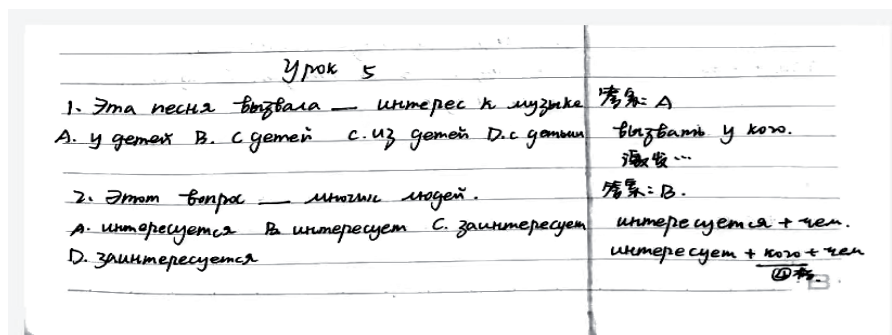 Урок 5
1. Эта песня вызвала — интерес к музыке
A. у детей B. с детей C. из детей D. с детьми
2. Этот вопрос — многих людей.
A. интересуется B. интересует C. заинтересует
D. заинтересуется
答案: A
вызвать у кого.
激发…
答案: B.
интересуется + чем.
интересует + кого + чем
④格.